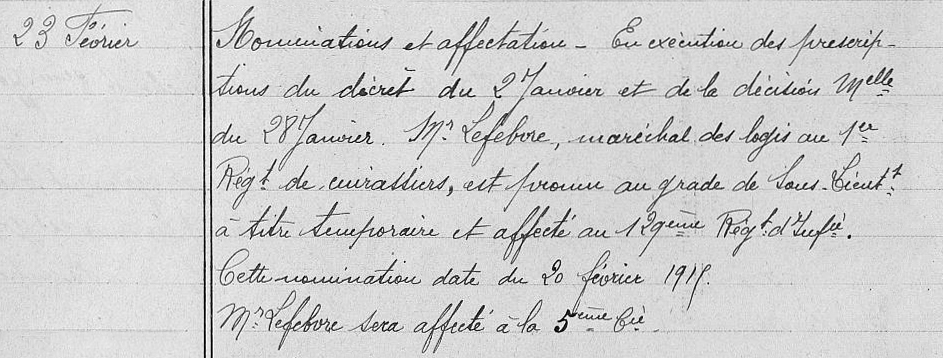 23 Février
Nominations et affectation - En exécution des prescrip-
tions du décrèt du 2 Janvier et de la décision Melle
du 28 Janvier. Mr Lefebvre, maréchal des logis au 1er
Régt de cuirassiers, est promu au grade de Sous-Lieutt
à titre temporaire et affecté au 129ème Régt d'Infie.
Cette nomination date du 20 février 1915.
Mr Lefebvre sera affecté à la 5ème Cie